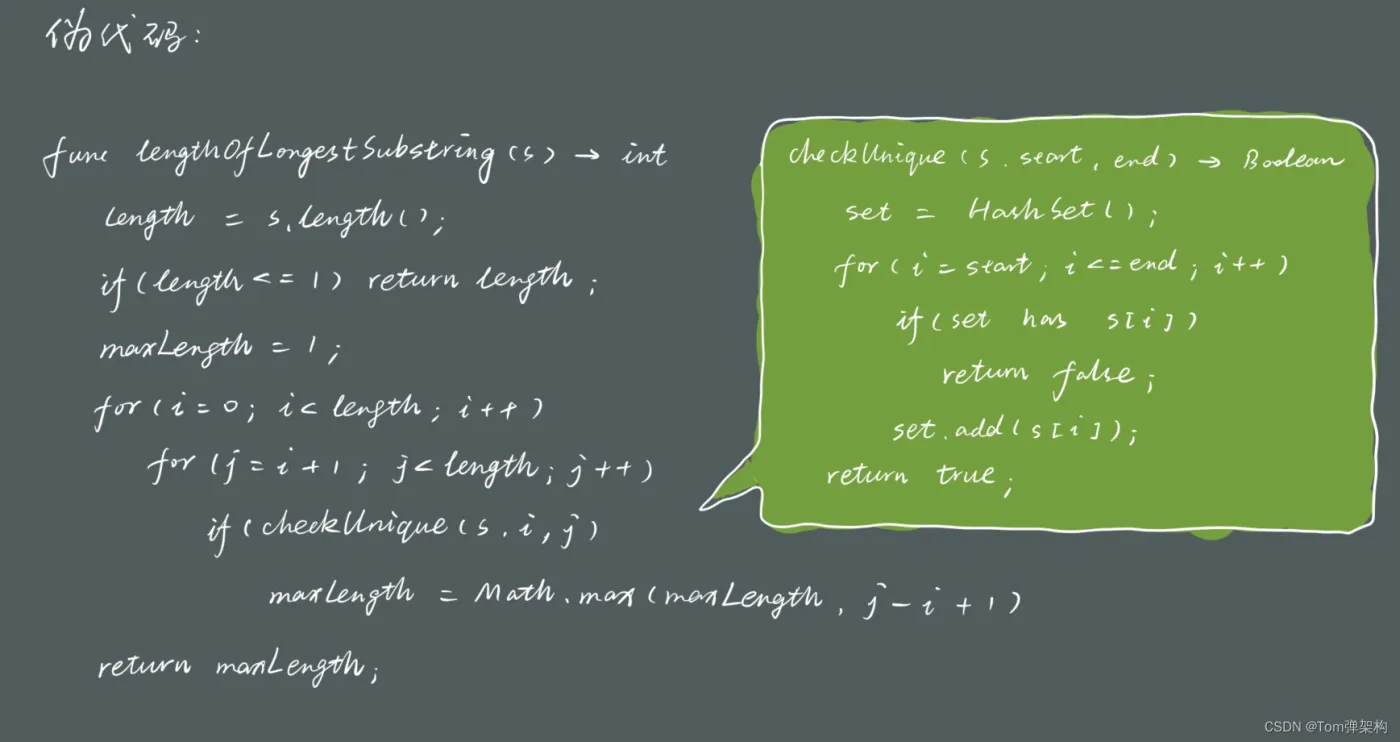 伪代码:
func lengthOfLongestSubstring(s) → int
length = s.length();
if(length <= 1) return length;
maxLength = 1;
for(i=0; i< length; i++)
for(j=i+1; j<length; j++)
if(checkUnique(s, i, j)
maxLength = Math.max(maxLength, j-i+1)
return maxLength;
checkUnique(s, start, end) → Boolean
set = HashSet();
for(i=start; i<=end; i++)
if(set has s[i])
return false;
set.add(s[i]);
return true;
CSDN @Tom弹架构